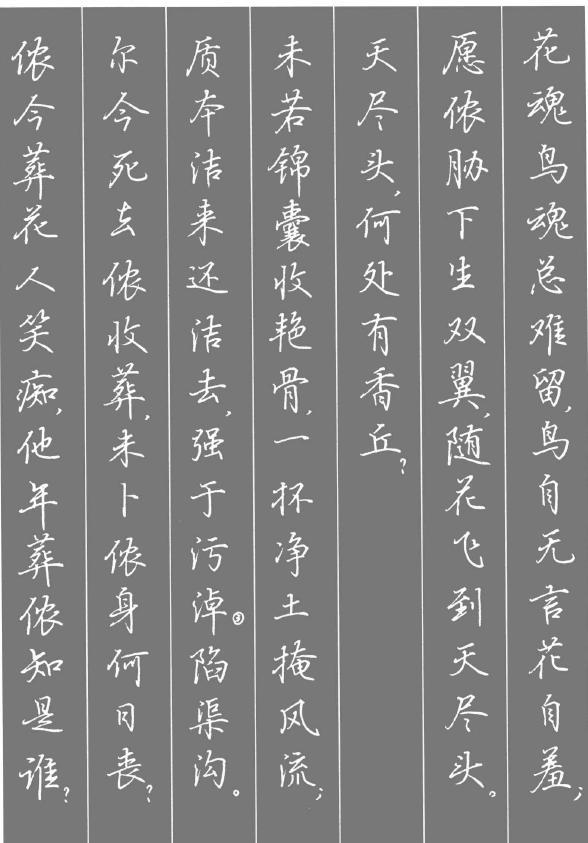 花魂鸟魂总难留,鸟自无言花自羞;
愿侬胁下生双翼,随花飞到天尽头。
天尽头,何处有香丘?
未若锦囊收艳骨,一抔净土掩风流;
质本洁来还洁去,强于污淖③陷渠沟。
尔今死去侬收葬,未卜侬身何日丧?
侬今葬花人笑痴,他年葬侬知是谁?